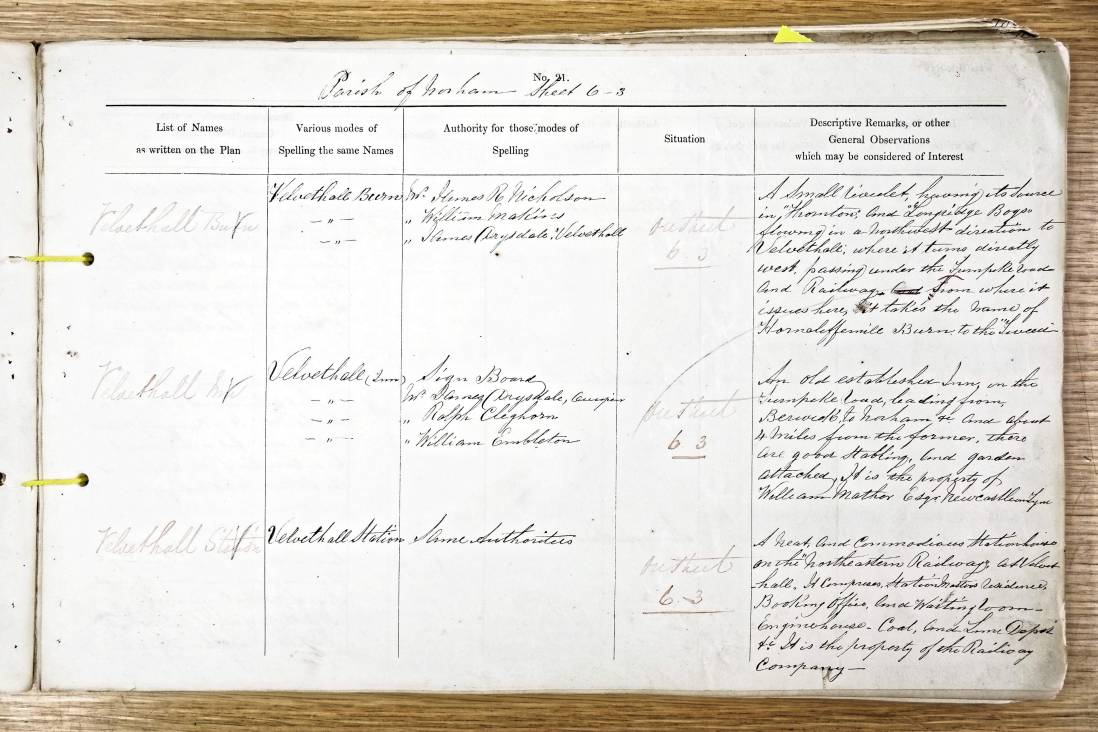 No. 21.
Parish of Norham Sheet 6-3
List of Names
as written on the Plan
Various modes of
Spelling the same Names
Authority for those modes of
Spelling
Situation
Descriptive Remarks, or other
General Observations
which may be considered of Interest
Velvethall Burn
Velvethall Burn
— „ —
— „ —
Mr. James R. Nicholson
„ William Makins
„ James Chrysdale, Velvethall
On Sheet
6 3
A Small rivulet, having its source
in "Thornton" and "Longridge Bogs"
flowing in a northwest direction to
Velvethall, where it turns directly
west, passing under the Turnpike road
and Railway, from where it
issues here, it takes the name of
Horncliffemill Burn, to the "Tweed"
Velvethall Inn
Velvethall (Inn)
— „ —
— „ —
— „ —
Sign Board
Mr. James Chrysdale, Occupier
„ Ralph Cleghorn
„ William Embleton
On Sheet
6 3
An old established Inn, on the
Turnpike road, leading from
Berwick, to Norham &c and about
4 miles from the former, there
are good Stabling, and garden
attached, It is the property of
William Mather Esqr. Newcastle on Tyne
Velvethall Station
Velvethall Station
Same Authorities
On Sheet
6-3
A Neat, and Commodious Stationhouse
on the "Northeastern Railway" at Velvet
-hall. It Comprises, Station Masters residence,
Booking Office, and Waiting room—
Enginehouse— Coal, and Lime Depôt
&c. It is the property of the Railway
Company—